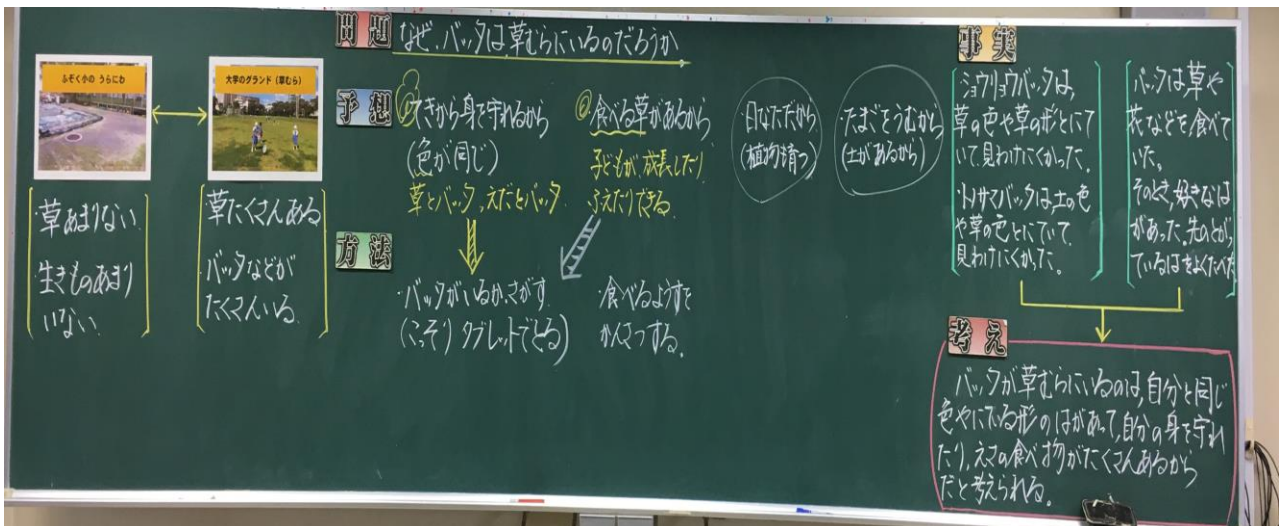 問題
なぜ、バッタは、草むらにいるのだろうか
ふぞく小の うらにわ
大学のグランド（草むら）
・草あまりない
・生きものあまり
いない
・草たくさんある
・バッタなどが
たくさんいる
予想
てきから身を守れるから
(色が同じ)
草とバッタ、えだとバッタ
食べる草があるから
子どもが、成長したり
ふえたりできる
・日なただから
(植物育つ)
・たまごをうむから
(土があるから)
方法
・バッタがいるか、さがす
(こっそり タブレットでとる)
・食べるようすを
かんさつする。
事実
ショウリョウバッタは、
草の色や草の形とにて
いて、見わけにくかった。
トノサマバッタは、土の色
や草の色とにていて、
見わけにくかった。
バッタは草や
花などを食べて
いた。
そのとき、好きなは
があった。先のとがっ
ているはをよくたべた
考え
バッタが草むらにいるのは、自分と同じ
色やにている形のはがあって、自分の身を守れ
たり、えさの食べ物がたくさんあるから
だと考えられる。